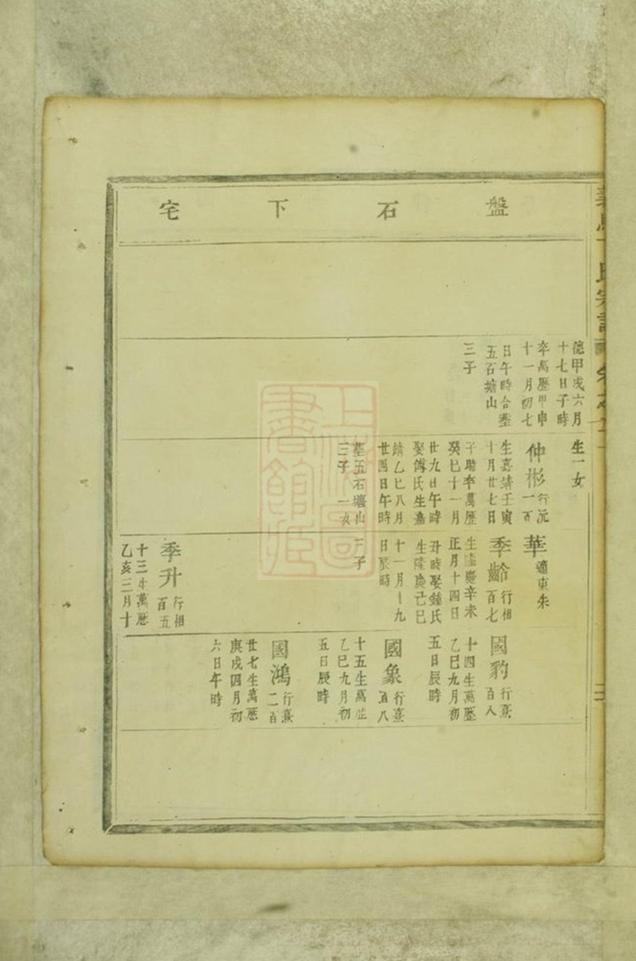 盤石下宅
德甲戌六月
十七日子時
卒萬歷甲申
十一月初七
日午時合塟
五石塘山
三子
生一女
仲彬行沅
一百
生嘉靖壬寅
十月廿七日
子時卒萬歷
癸巳十一月
廿九日午時
娶傅氏生嘉
靖乙巳八月
廿四日午時
塟五石塘山
三子一女
華
季齡行相
百七
生隆慶辛未
正月十四日
丑時娶鍾氏
生隆慶己巳
十一月十九
日辰時
三子
季升行相
百五
十三生萬歷
乙亥三月十
國豹行熹
百八
十四生萬歷
乙巳九月初
五日辰時
國象行熹
十五生萬歷
乙巳九月初
五日辰時
國鴻行熹
二百
廿七生萬歷
庚戌四月初
六日午時
上海圖書館藏